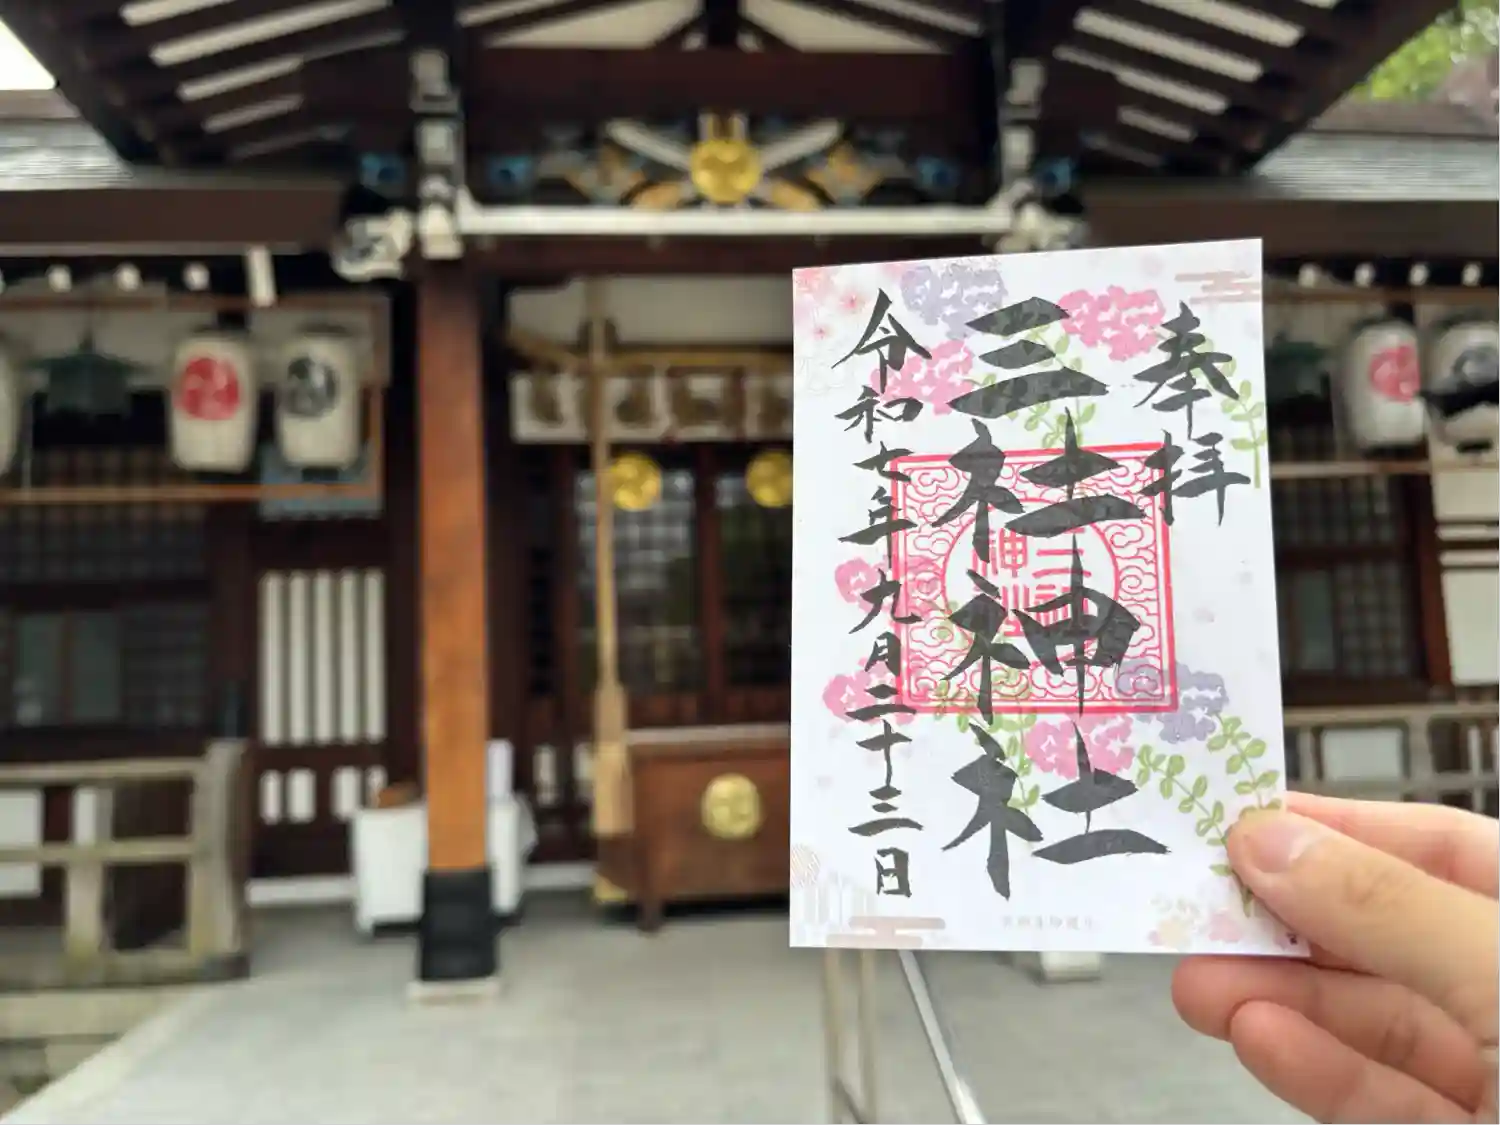 奉拝
三社神社
令和七年九月二十三日
三社
神社